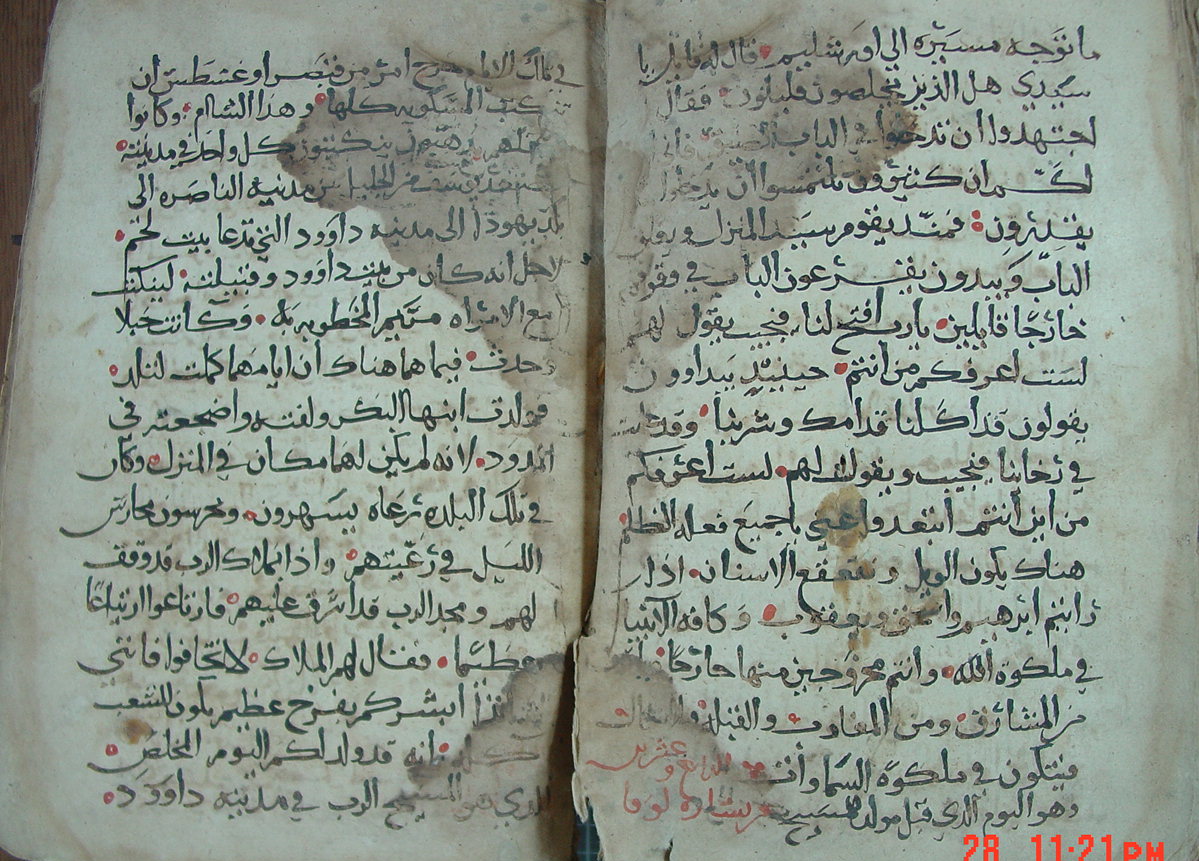 ما توجه مسيره الى اورشليم قال له قايل يا
سيدي هل الذين يخلصون قليلون فقال
اجتهدوا ان تدخلوا في الباب الضيق فاني
لكم ان كثيرون يلتمسوا ان يدخلوا
يقدرون فمند يقوم سيد المنزل ويغلق
الباب ويبدون يقفون يقرعون الباب في
خارجًا قايلين يارب افتح لنا فيجيب يقول لهم
لست اعرفكم من انتم حينيذٍ يبداوون
يقولون قد اكلنا قدامك وشربنا
فيجيب ويقول لهم لست اعرفكم
من اين انتم ابتعدوا عني يا جميع فعله الظلم
هناك يكون الويل وتقعقع الاسنان اذا
رايتم ابرهيم واسحق ويعقوب وكافه الانبيا
في ملكوة الله وانتم مخروجين منها خارجًا
من المشارق ومن المغارب والقبله والشمال
فيتكون في ملكوة السماوات
الرابع وعشرين
وهو اليوم الذي قبل مولد المسيح
من بشارة لوقا
في تلك الايام خرج امر من قيصر اوغسطس ان
تكتب المسكونه كلها وهذا الشام وكانوا
كلهم يكتتبوا كل واحد في مدينته
من الجليل من مدينه الناصره الى
بلد يهودا الى مدينه داوود التي تدعا بيت لحم
لاجل انه كان من بيت داوود وقبيلته ليكتتب
مع الامراه مريم المخطوبه له وكانت حبلا
وحدث فيما هما هناك ان ايامهما كملت لتلد
فولدت ابنها البكر ولفته واضجعته في
المدود لانه لم يكن لهما مكان في المنزل وكان
في تلك البلده رعاه يسهرون ويحرسون محارس
الليل في رعيتهم واذا بملاك الرب قد وقف
لهم ومجد الرب قد اشرق عليهم فارتاعوا ارتياعًا
عظيما فقال لهم الملاك لا تخافوا فانني
ابشركم بفرح عظيم يكون للشعب
كله انه قد ولد لكم اليوم المخلص
الذي هو المسيح الرب في مدينه داوود
28 11:21 PM